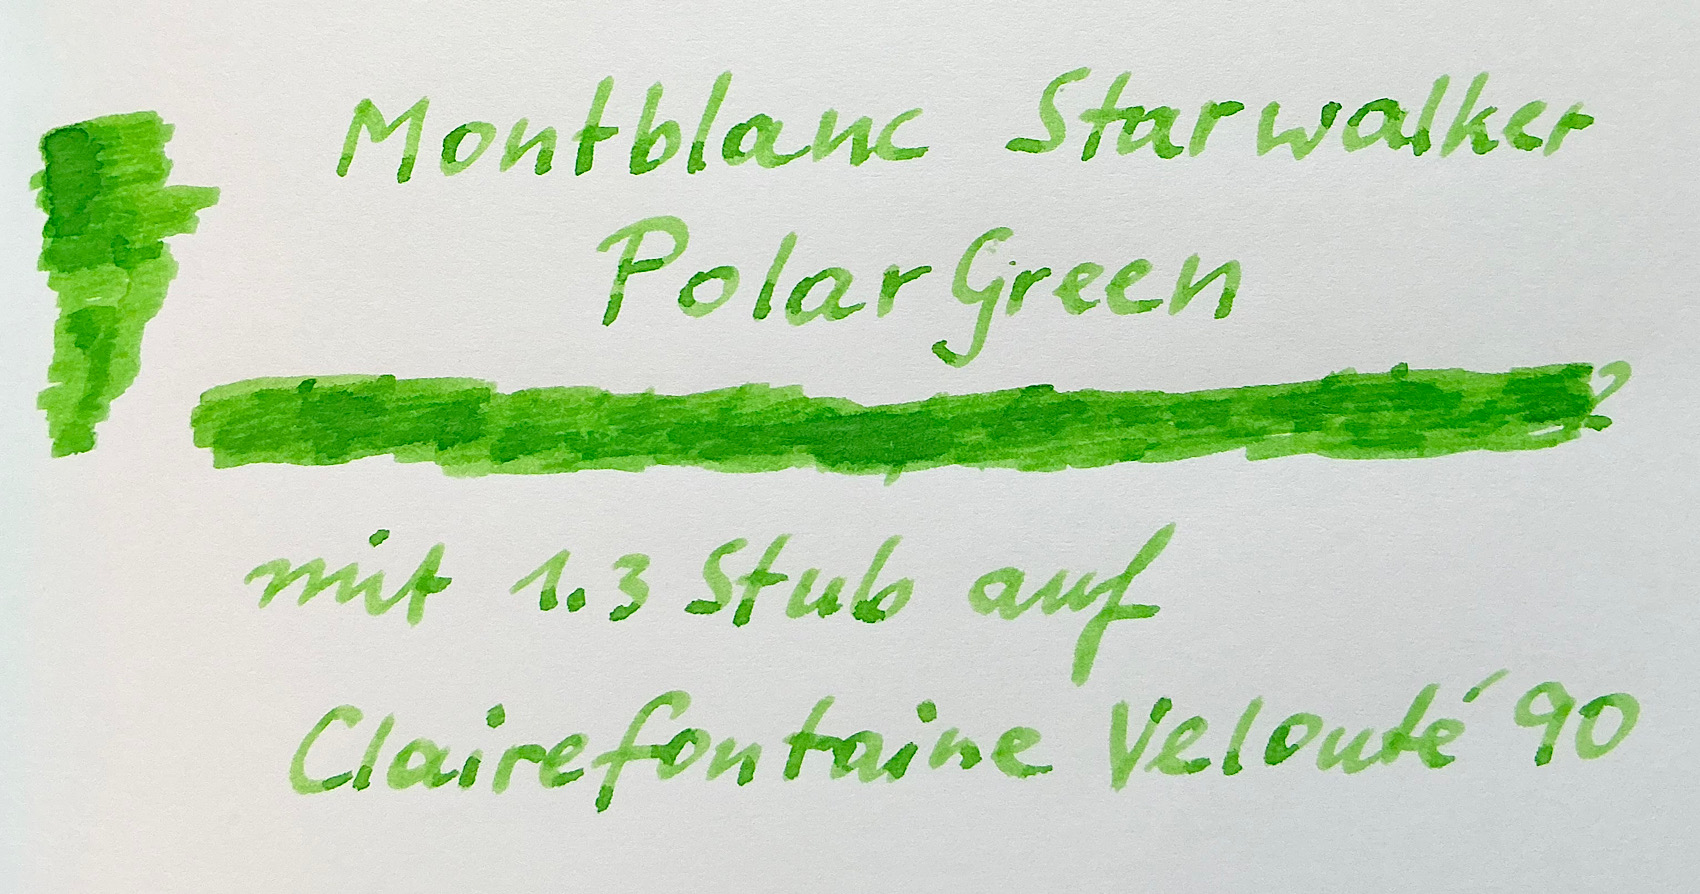 Montblanc Starwalker
Polar Green
mit 1.3 Stub auf
Clairefontaine Velouté 90